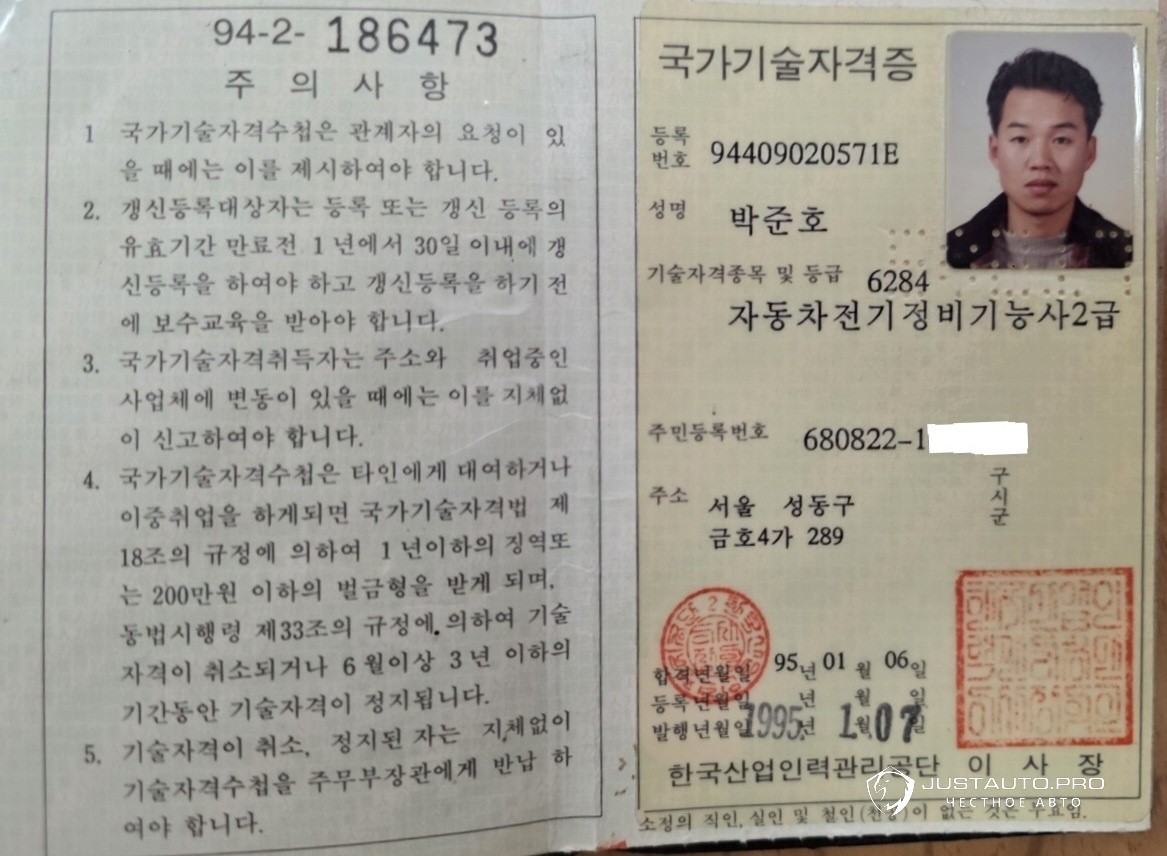 94-2- 186473
주 의 사 항
1 국가기술자격수첩은 관계자의 요청이 있
을 때에는 이를 제시하여야 합니다.
2. 갱신등록대상자는 등록 또는 갱신 등록의
유효기간 만료전 1년에서 30일 이내에 갱
신등록을 하여야 하고 갱신등록을 하기 전
에 보수교육을 받아야 합니다.
3. 국가기술자격취득자는 주소와 취업중인
사업체에 변동이 있을 때에는 이를 지체없
이 신고하여야 합니다.
4. 국가기술자격수첩은 타인에게 대여하거나
이중취업을 하게되면 국가기술자격법 제
18조의 규정에 의하여 1년이하의 징역또
는 200만원 이하의 벌금형을 받게 되며,
동법시행령 제33조의 규정에 의하여 기술
자격이 취소되거나 6월이상 3년 이하의
기간동안 기술자격이 정지됩니다.
5. 기술자격이 취소, 정지된 자는 지체없이
기술자격수첩을 주무부장관에게 반납 하
여야 합니다.
국가기술자격증
등록
번호 94409020571E
성명 박준호
기술자격종목 및 등급 6284
자동차전기정비기능사2급
주민등록번호 680822-1
주소 서울 성동구
구
시
군
금호4가 289
합격년월일 95년 01월 06일
등록년월일 년 월 일
발행년월일 1995년 1월 07일
한국산업인력관리공단 이 사 장
JUSTAUTO.PRO
ЧЕСТНОЕ АВТО
소정의 직인, 실인 및 철인(천공)이 없는 것은 무효임.